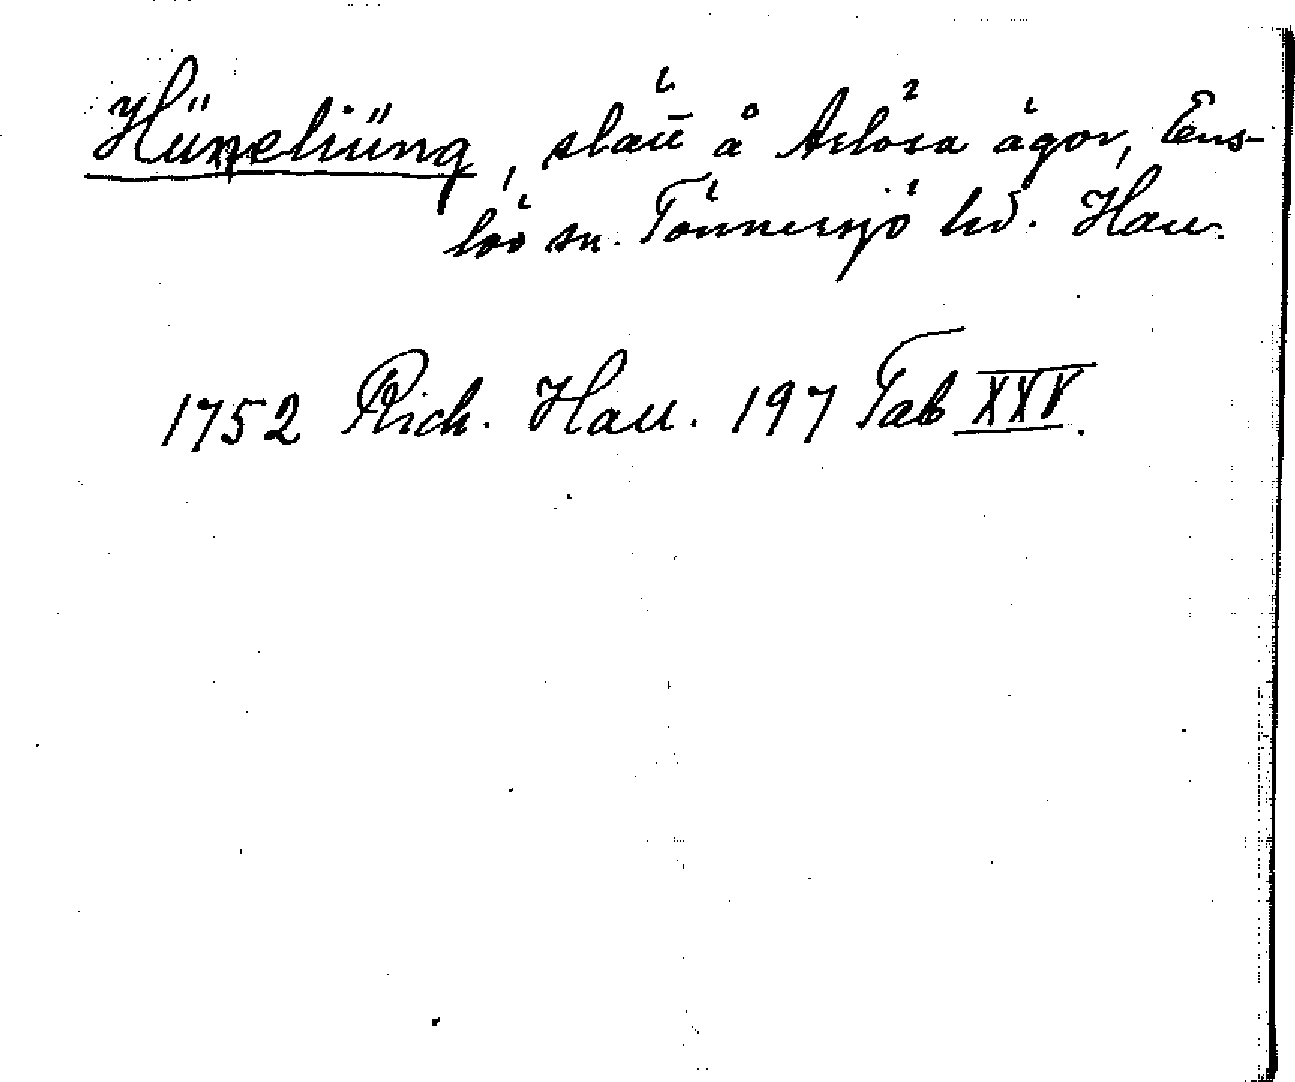 Hünehüng, slätt å Årlösa ägor, Ens-
löv sn. Tönnersjö hd. Hall.
1752 Rich. Hall. 197 Tab XXV.